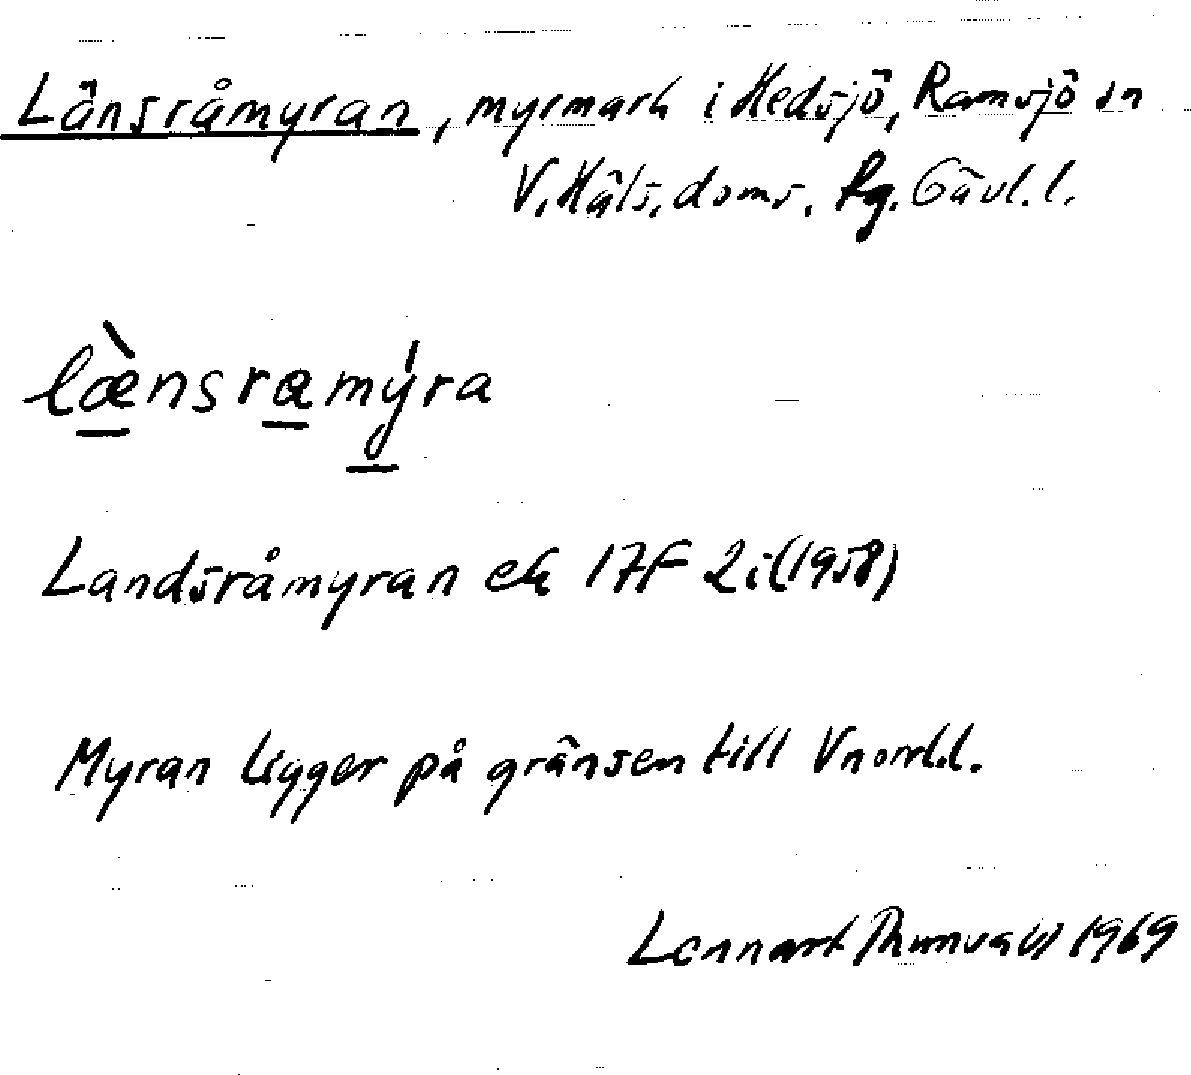 Länsråmyran, myrmark i Hedsjö, Ramsjö sn
V. Häls. doms. Rg. Gävl. l.
læ̀nsramýra
Landsråmyran ek 17F 2i (1958)
Myran ligger på gränsen till Vnorrl.l.
Lennart Thunvall 1969